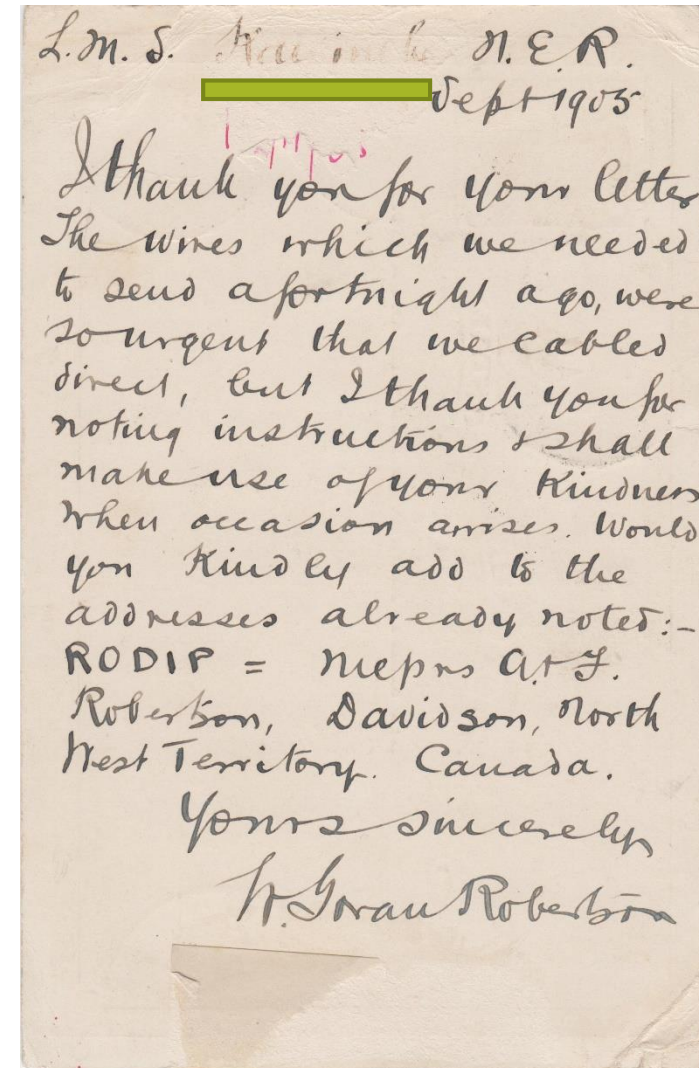 L. M. S. N. E. R.
Sept 1905
I thank you for your letter
The wires which we needed
to send a fortnight ago, were
so urgent that we cabled
direct, but I thank you for
noting instructions & shall
make use of your Kindness
when occasion arises. Would
you Kindly add to the
addresses already noted:-
RODIP = Messrs A. & F.
Robertson, Davidson, North
West Territory. Canada.
Yours sincerely
W. Govan Robertson